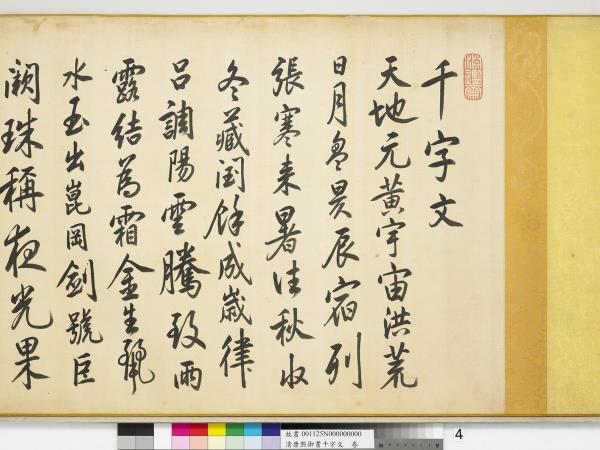 千字文
天地元黃宇宙洪荒
日月盈昃辰宿列
張寒来暑往秋收
冬藏閏餘成歲律
呂調陽雲騰致雨
露結為霜金生麗
水玉出崑岡劍號巨
闕珠稱夜光果
故書 001125N000000000
清康熙御書千字文 卷
4